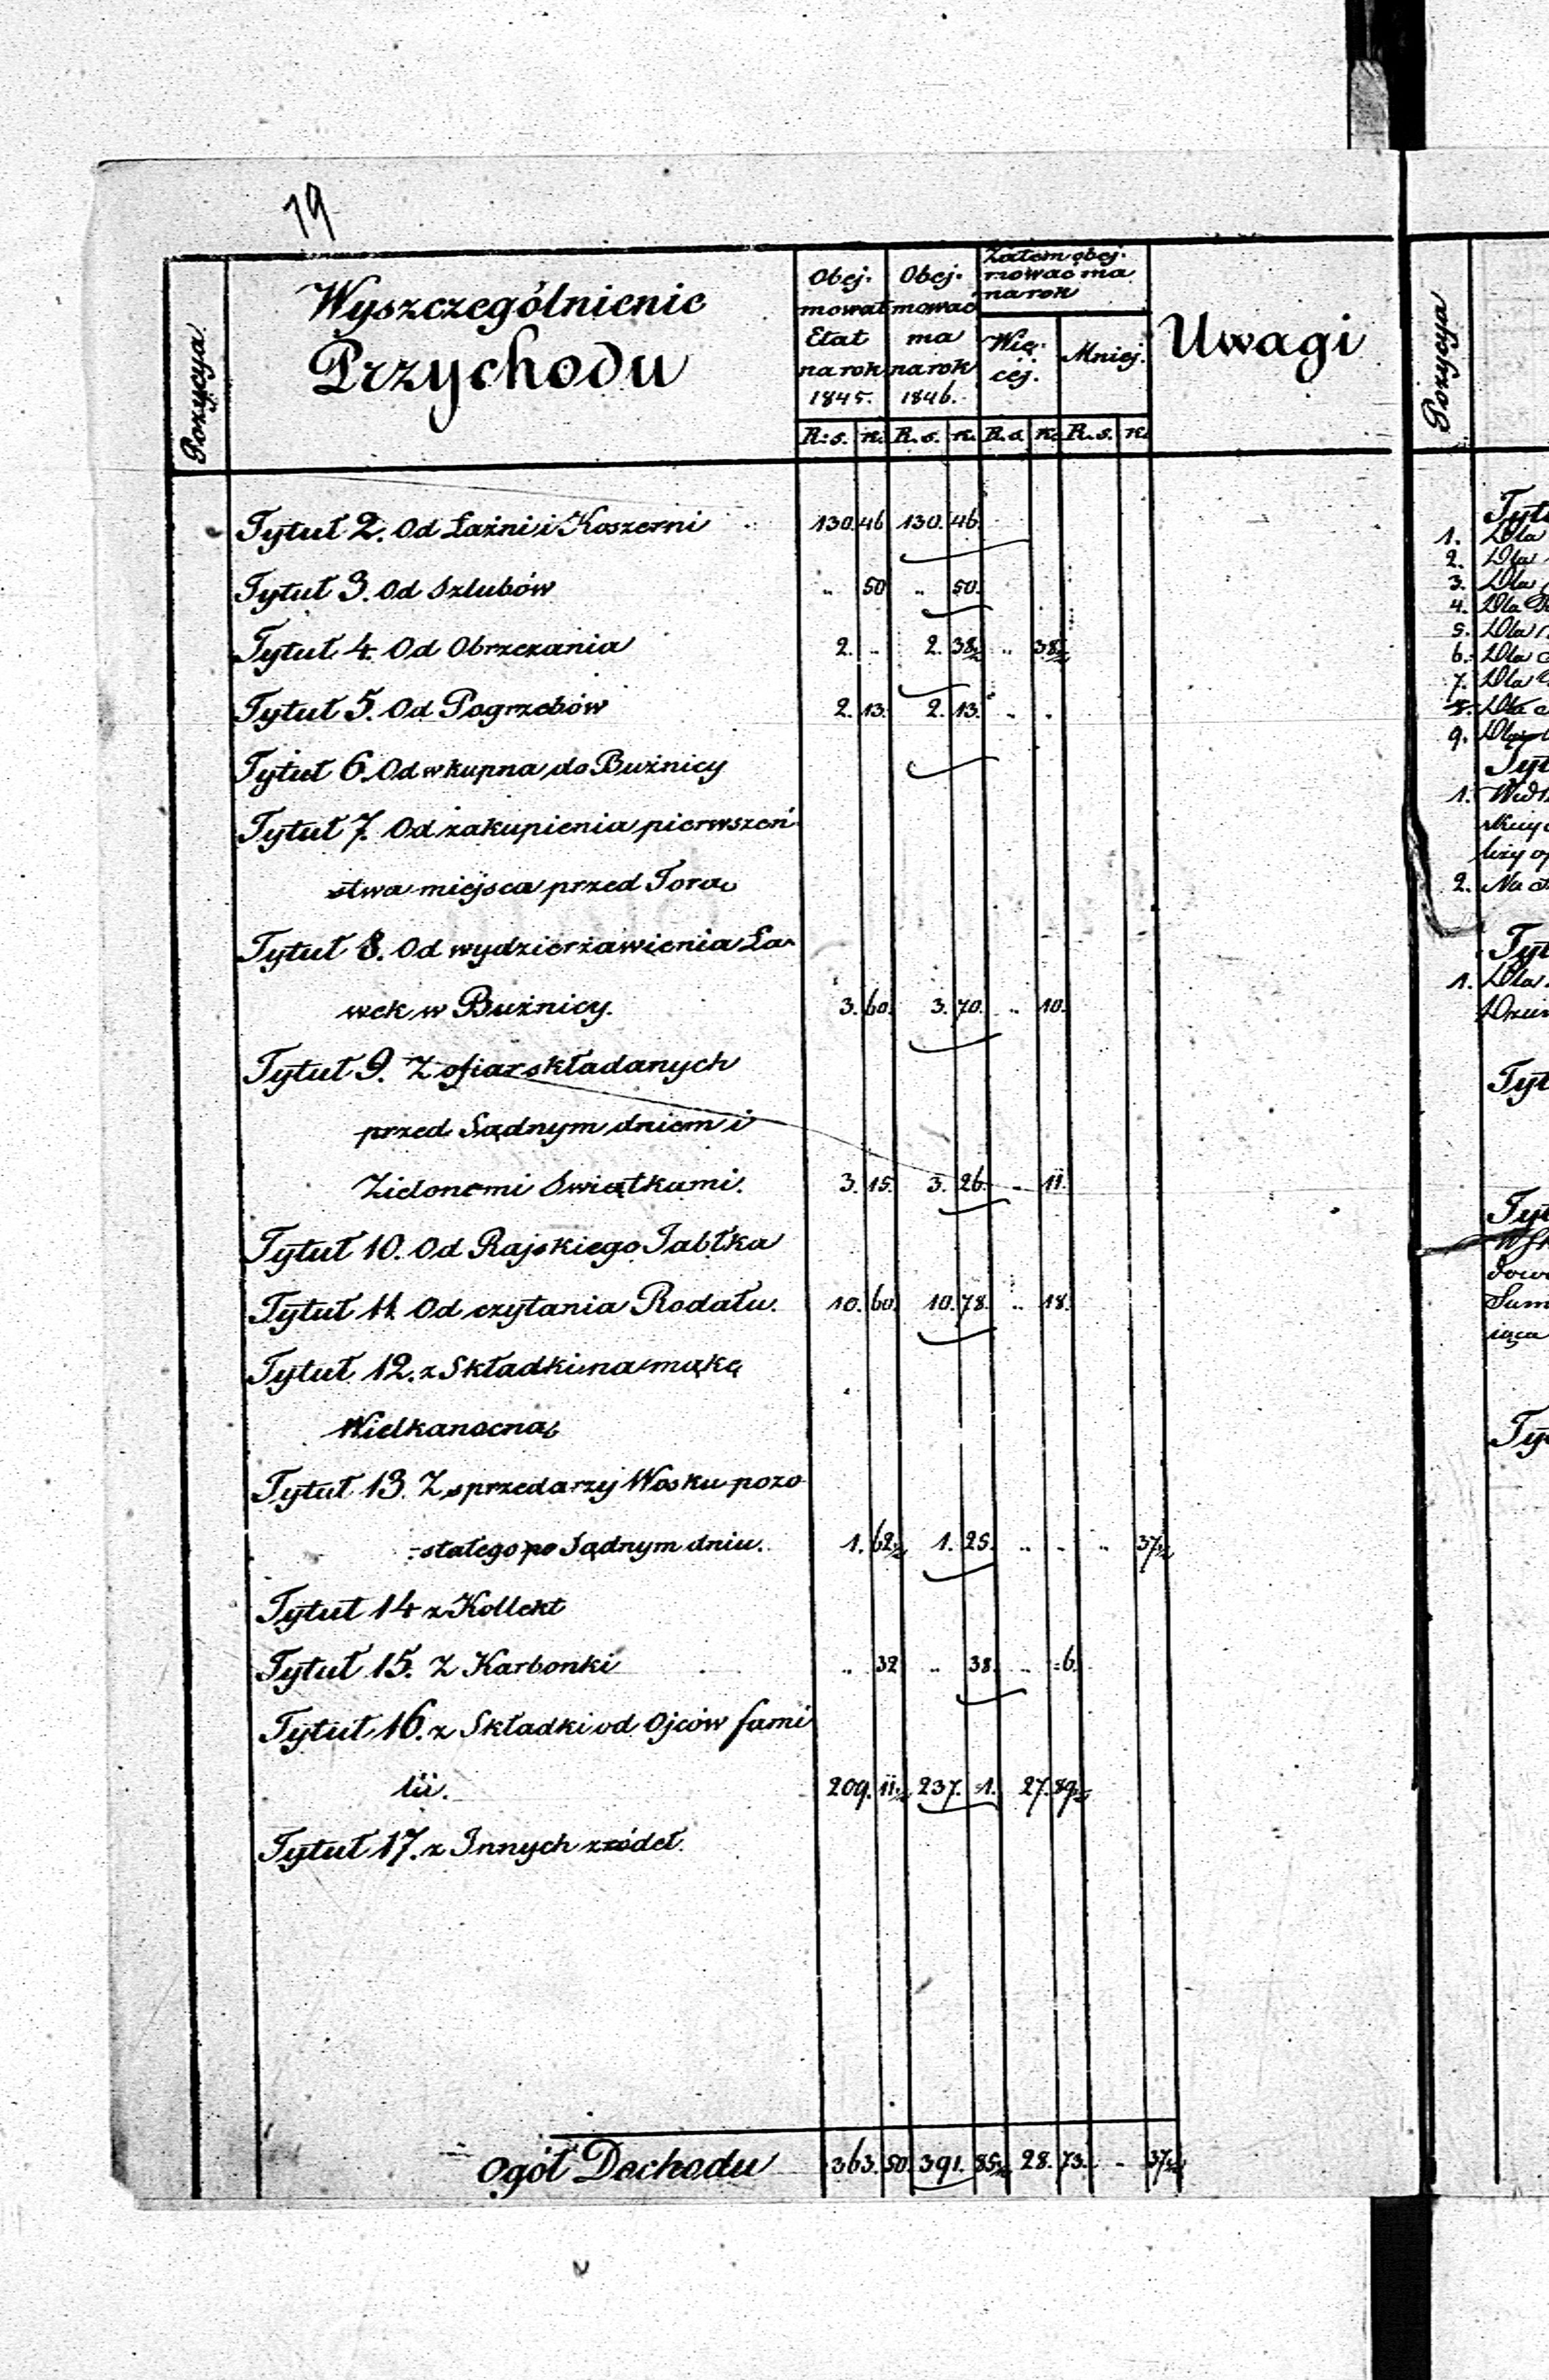 19
Pozycya
Wyszczególnienie
Przychodu
Obej-
mował
Etat
na rok
1845.
Obej-
mować
ma
na rok
1846.
Zatem obej-
mować ma
na rok
Wię-
cej.
Mniej.
Uwagi
R: s. k. R. s. k. R. s. k. R. s. k.
Tytuł 2. Od Łaźni i Koszerni 130. 46 130. 46.
Tytuł 3. Od Szlubów .. 50 .. 50.
Tytuł 4. Od Obrzezania 2. .. 2. 38½ .. 38½
Tytuł 5. Od Pogrzebów 2. 13. 2. 13. . .
Tytuł 6. Od wkupna do Bużnicy
Tytuł 7. Od zakupienia pierwszeń-
stwa miejsca przed Torą
Tytuł 8. Od wydzierżawienia Ła-
wek w Bużnicy. 3. 60. 3. 70. .. 10.
Tytuł 9. Z ofiar składanych
przed Sądnym dniem i
Zielonemi Swiątkami. 3. 15. 3. 26. .. 11.
Tytuł 10. Od Rajskiego Jabłka
Tytuł 11. Od czytania Rodału. 10. 60. 10. 78. .. 18.
Tytuł 12. z Składki na mąkę
Wielkanocną
Tytuł 13. Z sprzedarzy Wosku pozo
-stałego po Sądnym dniu. 1. 62½ 1. 25. .. . .. 37½
Tytuł 14 z Kollekt
Tytuł 15. Z Karbonki .. 32 .. 38. .. =6.
Tytuł 16. z Składki od Ojców fami
lii. 209. 11½ 237. =1. 27. 89½
Tytuł 17. z Innych zródeł.
Ogół Dochodu 363. 50. 391. 85½ 28. 73. .. 37½
Pozycya
1. Dla
2. Dla
3. Dla
4. Dla
5. Dla
6. Dla
7. Dla
8. Dla
9.
1.
2. Na
1. Dla